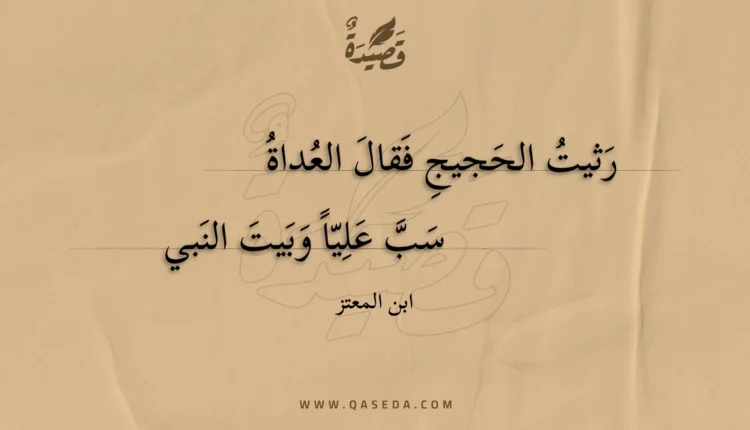 قَصِيدَةٌ
رَثيتُ الحَجيجِ فَقالَ العُداةُ
سَبَّ عَلِيّاً وَبَيتَ النَبي
ابن المعتز
WWW.QASEDA.COM